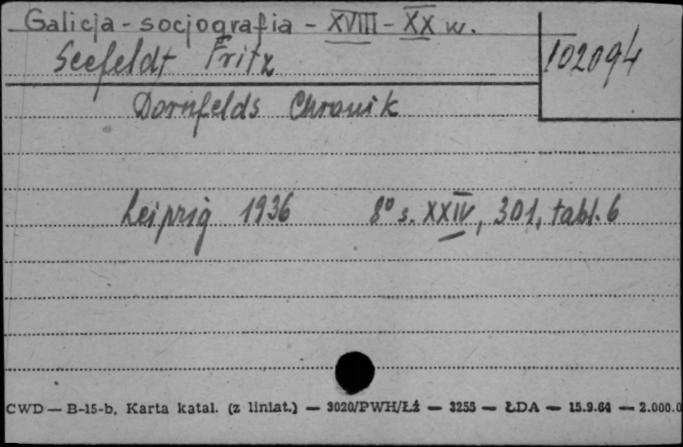 Galicja - socjografia - XVIII - XX w.
Seefeldt Fritz
102094
Dornfelds Chronik
Leipzig 1936 8º s. XXIV, 301, tabl. 6
CWD — B-15-b. Karta katal. (z liniat.) — 3020/PWH/Łź — 3255 — ŁDA — 15.9.64 — 2.000.0